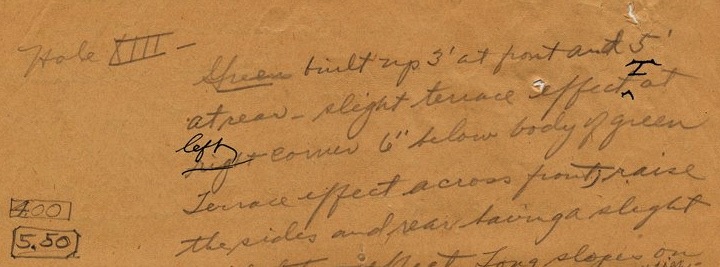 Hole XIII —
Green built up 3' at front and 5'
at rear — slight terrace effect I at
left
right corner 6" below body of green
Terrace effect across front, raise
400
the sides and rear having a slight
5.50
effect Long slopes on